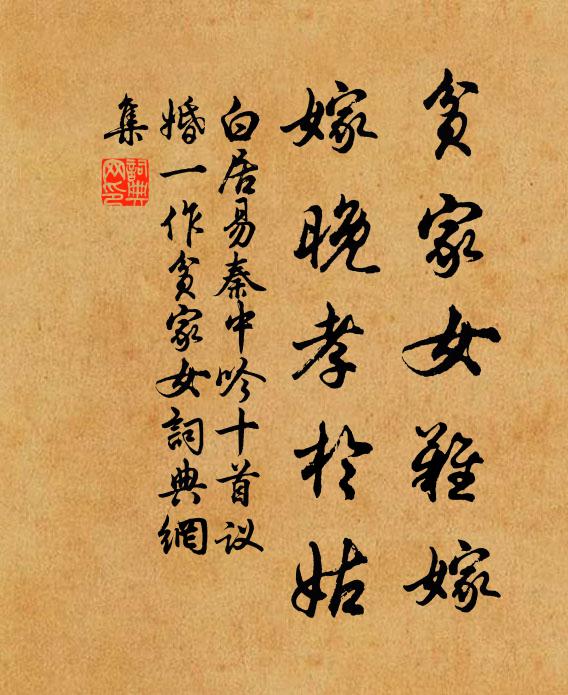 貧家女難嫁
嫁晚孝於姑
白居易秦中吟十首议
婚一作貧家女詞典網
集
詞典
网印